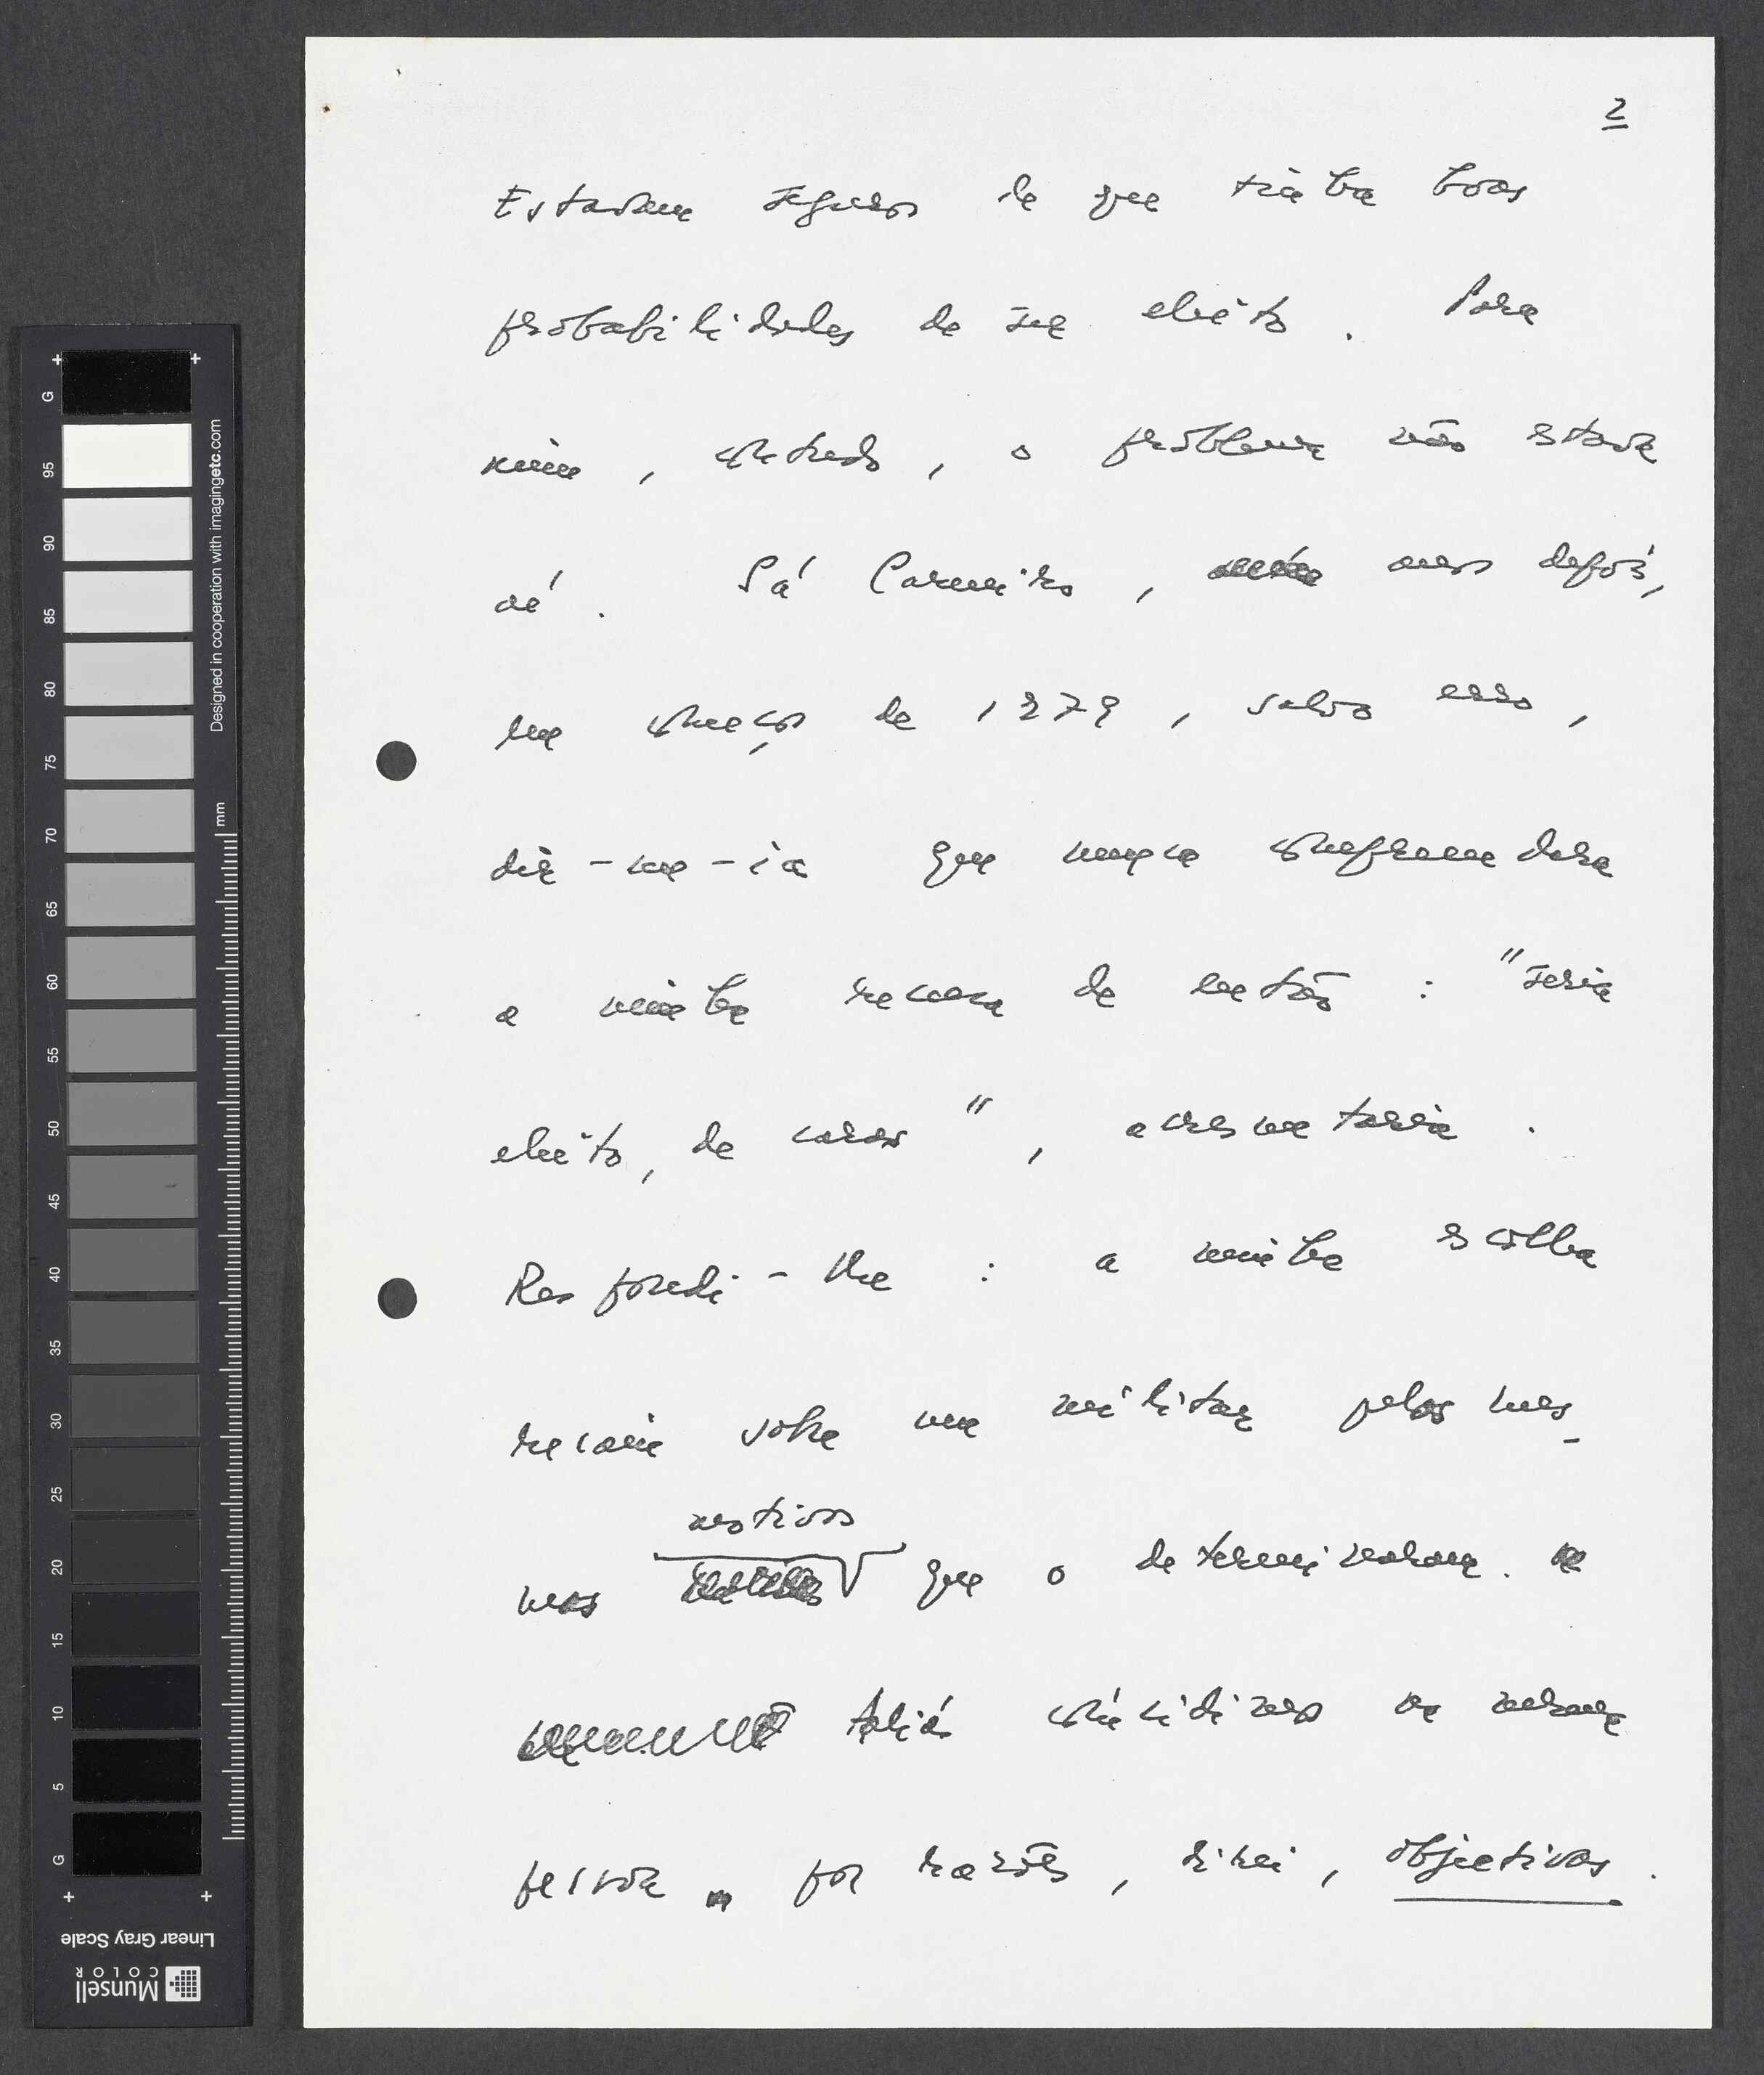 2
Estavam seguros de que tinha boas
probabilidades de ser eleito. Para
mim, contudo, o problema não estava
aí. Sá Carneiro, anos depois,
em começos de 1979, salvo erro,
dir-me-ia que nunca compreendera
a minha recusa de então: "seria
eleito, de caras", acrescentaria.
Respondi-lhe: a minha escolha
recaía sobre um militar pelos mes-
motivos
mos que o determinaram.
Aliás coincidimos na mesma
pessoa por razões, direi, objectivas.
G
95
90
85
80
75
70
65
60
55
50
45
40
35
30
25
20
15
10
5
G
mm
Designed in cooperation with imagingetc.com
Linear Gray Scale
Munsell
COLOR